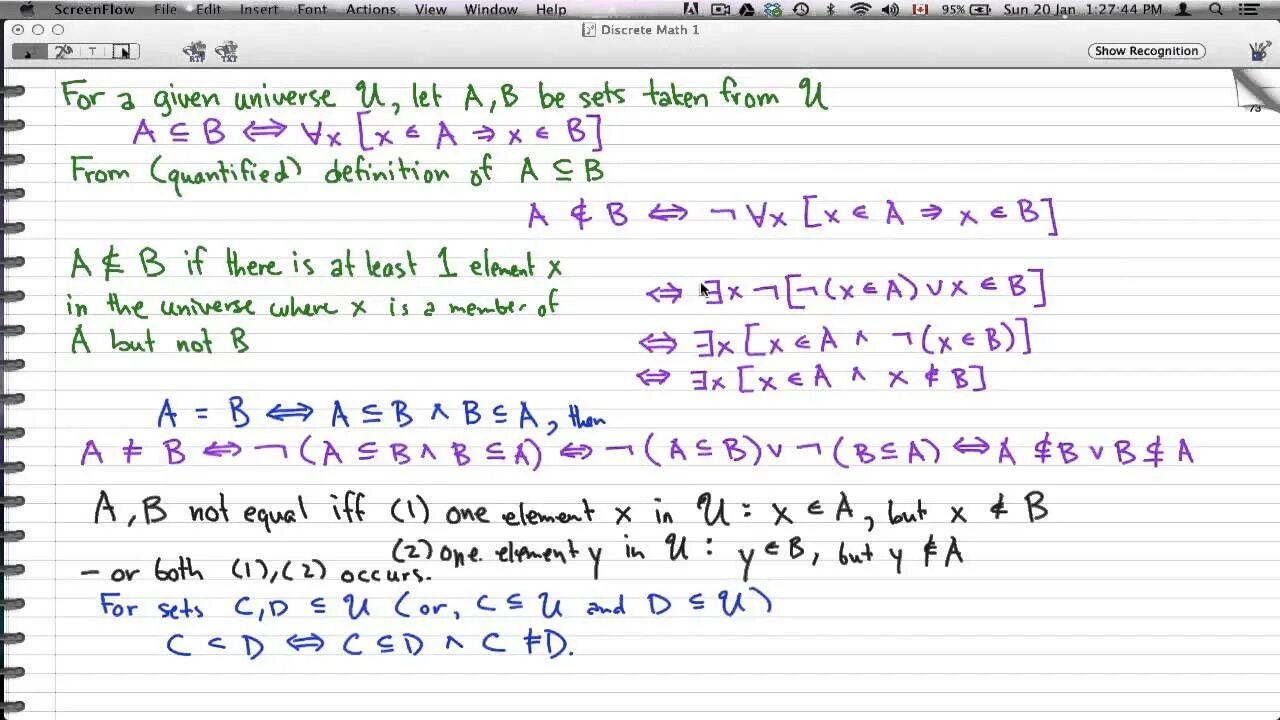 ScreenFlow File Edit Insert Font Actions View Window Help 95% Sun 20 Jan 1:27:44 PM
Discrete Math 1
T RTF TXT Show Recognition
73
For a given universe U, let A, B be sets taken from U
A ⊆ B ⇔ ∀x [x ∈ A ⇒ x ∈ B]
From (quantified) definition of A ⊆ B
A ⊈ B ⇔ ¬ ∀x [x ∈ A ⇒ x ∈ B]
A ⊈ B if there is at least 1 element x
in the universe where x is a member of
A but not B
⇔ ∃x ¬[¬(x ∈ A) ∨ x ∈ B]
⇔ ∃x [x ∈ A ∧ ¬(x ∈ B)]
⇔ ∃x [x ∈ A ∧ x ∉ B]
A = B ⇔ A ⊆ B ∧ B ⊆ A, then
A ≠ B ⇔ ¬(A ⊆ B ∧ B ⊆ A) ⇔ ¬(A ⊆ B) ∨ ¬(B ⊆ A) ⇔ A ⊈ B ∨ B ⊈ A
A, B not equal iff (1) one element x in U : x ∈ A, but x ∉ B
(2) one element y in U : y ∈ B, but y ∉ A
– or both (1),(2) occurs.
For sets C, D ⊆ U (or, C ⊆ U and D ⊆ U)
C ⊂ D ⇔ C ⊆ D ∧ C ≠ D.